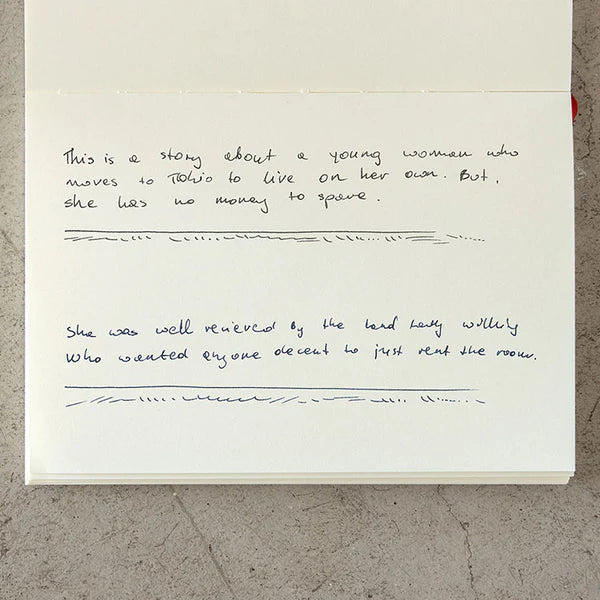 This is a story about a young woman who
moves to Tokio to live on her own. But,
she has no money to spare.
She was well recieved by the land lady willing
Who wanted anyone decent to just rent the room.